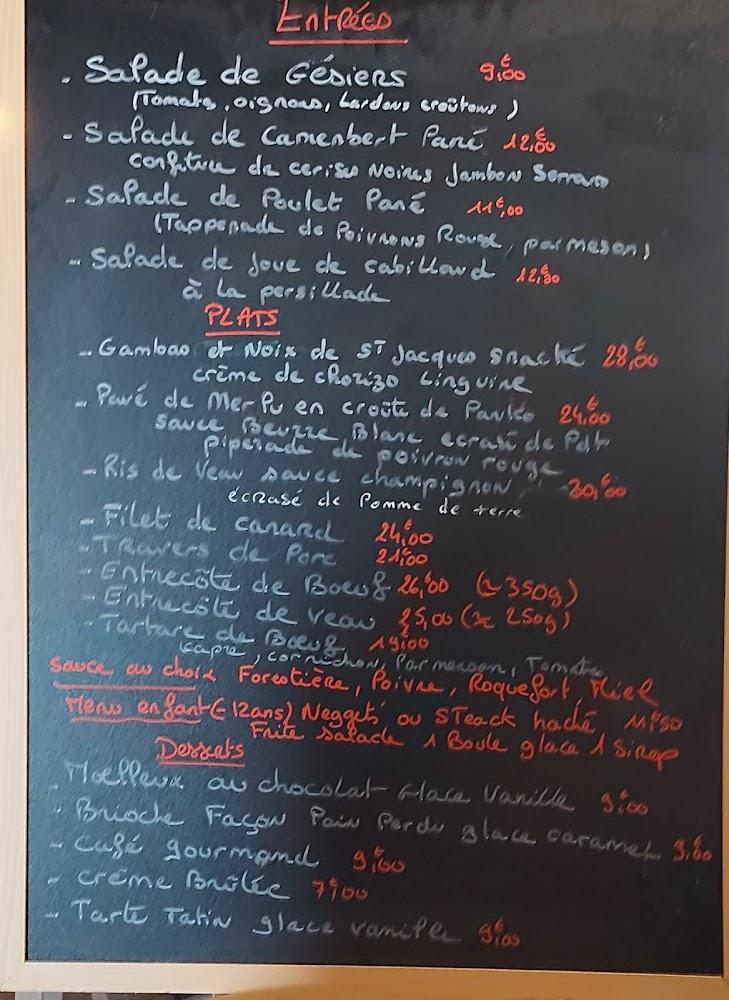 Entrées
- Salade de Gésiers 9,€00
(Tomate, oignons, lardons croûtons)
- Salade de Camembert Pané 12,€00
confiture de cerises Noires Jambon Serrano
- Salade de Poulet Pané 11€,00
(Tappenade de Poivrons Rouge, parmesan)
- Salade de Joue de cabillaud
à la persillade
PLATS
- Gambas et Noix de ST Jacques snacké 28,€00
crème de chorizo Linguine
- Pavé de Merlu en croûte de Panko 24,€00
sauce Beurre Blanc ecrasé de Pdt
piperade de poivron rouge
- Ris de Veau sauce champignon 30,€00
écrasé de Pomme de terre
- Filet de canard 24,€00
- Travers de Porc 21€00
- Entrecôte de Boeuf 26,€00 (≃ 350g)
- Entrecôte de veau 25,00 (≃ 250g)
- Tartare de Bœuf 19€00
capre, cornichon, Parmesan, Tomates
Sauce au choix Forestière, Poivre, Roquefort, Miel
Menu enfant (- 12ans) Neggets ou STeack haché 11€50
Frite salade 1 Boule glace 1 Sirop
Desserts
- Moelleux au chocolat Glace Vanille 9€00
- Brioche Façon Pain Perdu glace caramel 9,€00
- Café gourmand 9,€00
- Crème Brûlée 7€00
- Tarte Tatin glace vanille 9€,00